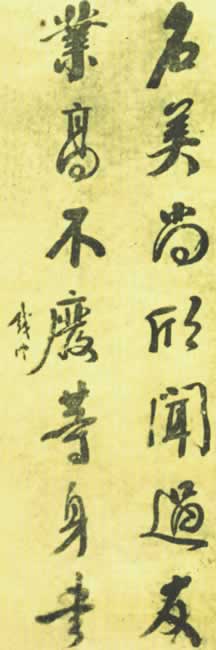 名美尚欣聞過友
業高不廢等身書
錢